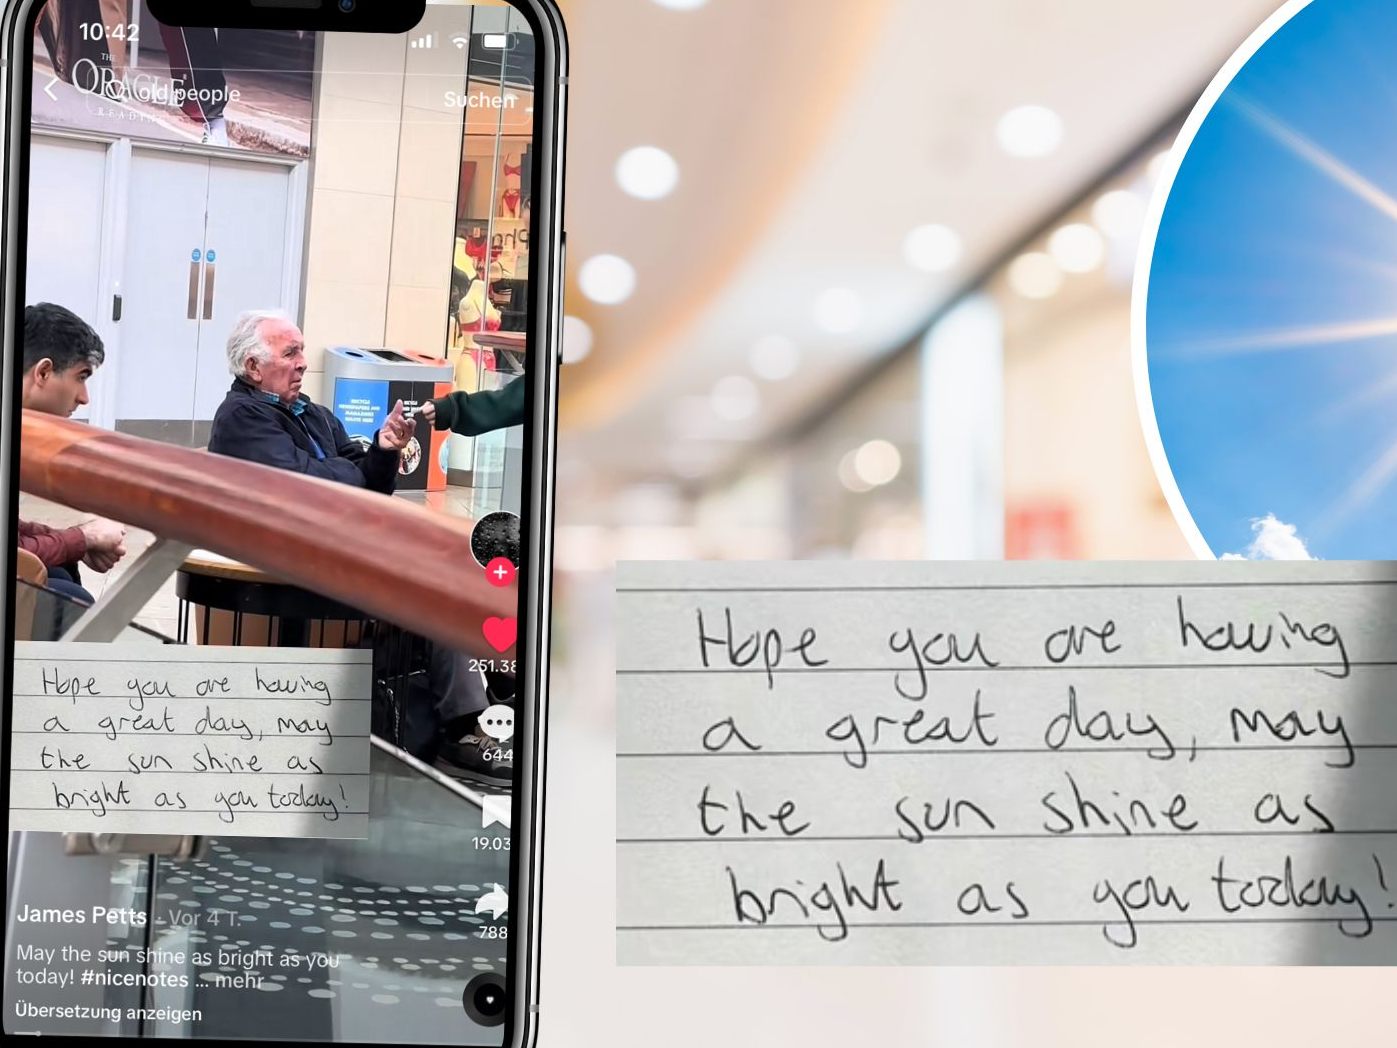 10:42
THE
ORACLE
READING
old people
Suchen
RECYCLE
NEWSPAPERS AND
MAGAZINES
251.3
644
19.03
788
Hope you are having
a great day, may
the sun shine as
bright as you today!
James Petts · Vor 4 T.
May the sun shine as bright as you
today! #nicenotes ... mehr
Übersetzung anzeigen
Hope you are having
a great day, may
the sun shine as
bright as you today!